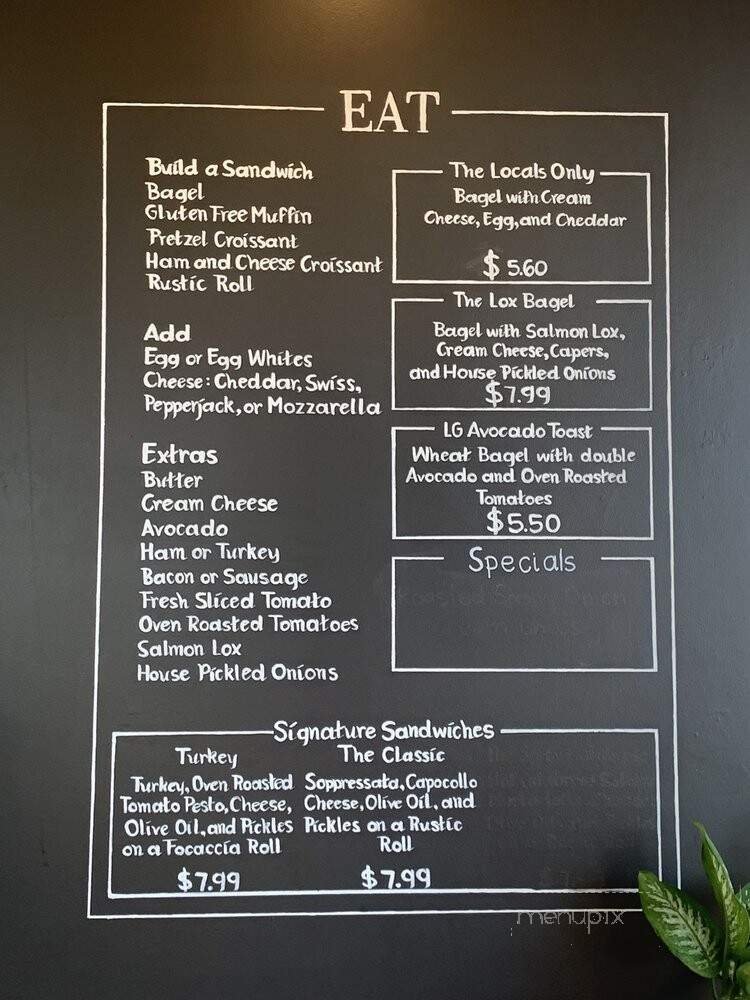 EAT
Build a Sandwich
Bagel
Gluten Free Muffin
Pretzel Croissant
Ham and Cheese Croissant
Rustic Roll
Add
Egg or Egg Whites
Cheese: Cheddar, Swiss,
Pepperjack, or Mozzarella
Extras
Butter
Cream Cheese
Avocado
Ham or Turkey
Bacon or Sausage
Fresh Sliced Tomato
Oven Roasted Tomatoes
Salmon Lox
House Pickled Onions
The Locals Only
Bagel with Cream
Cheese, Egg, and Cheddar
$ 5.60
The Lox Bagel
Bagel with Salmon Lox,
Cream Cheese, Capers,
and House Pickled Onions
$7.99
LG Avocado Toast
Wheat Bagel with double
Avocado and Oven Roasted
Tomatoes
$5.50
Specials
Signature Sandwiches
Turkey
Turkey, Oven Roasted
Tomato Pesto, Cheese,
Olive Oil, and Pickles
on a Focaccia Roll
$7.99
The Classic
Soppressata, Capocollo
Cheese, Olive Oil, and
Pickles on a Rustic
Roll
$7.99
menupix